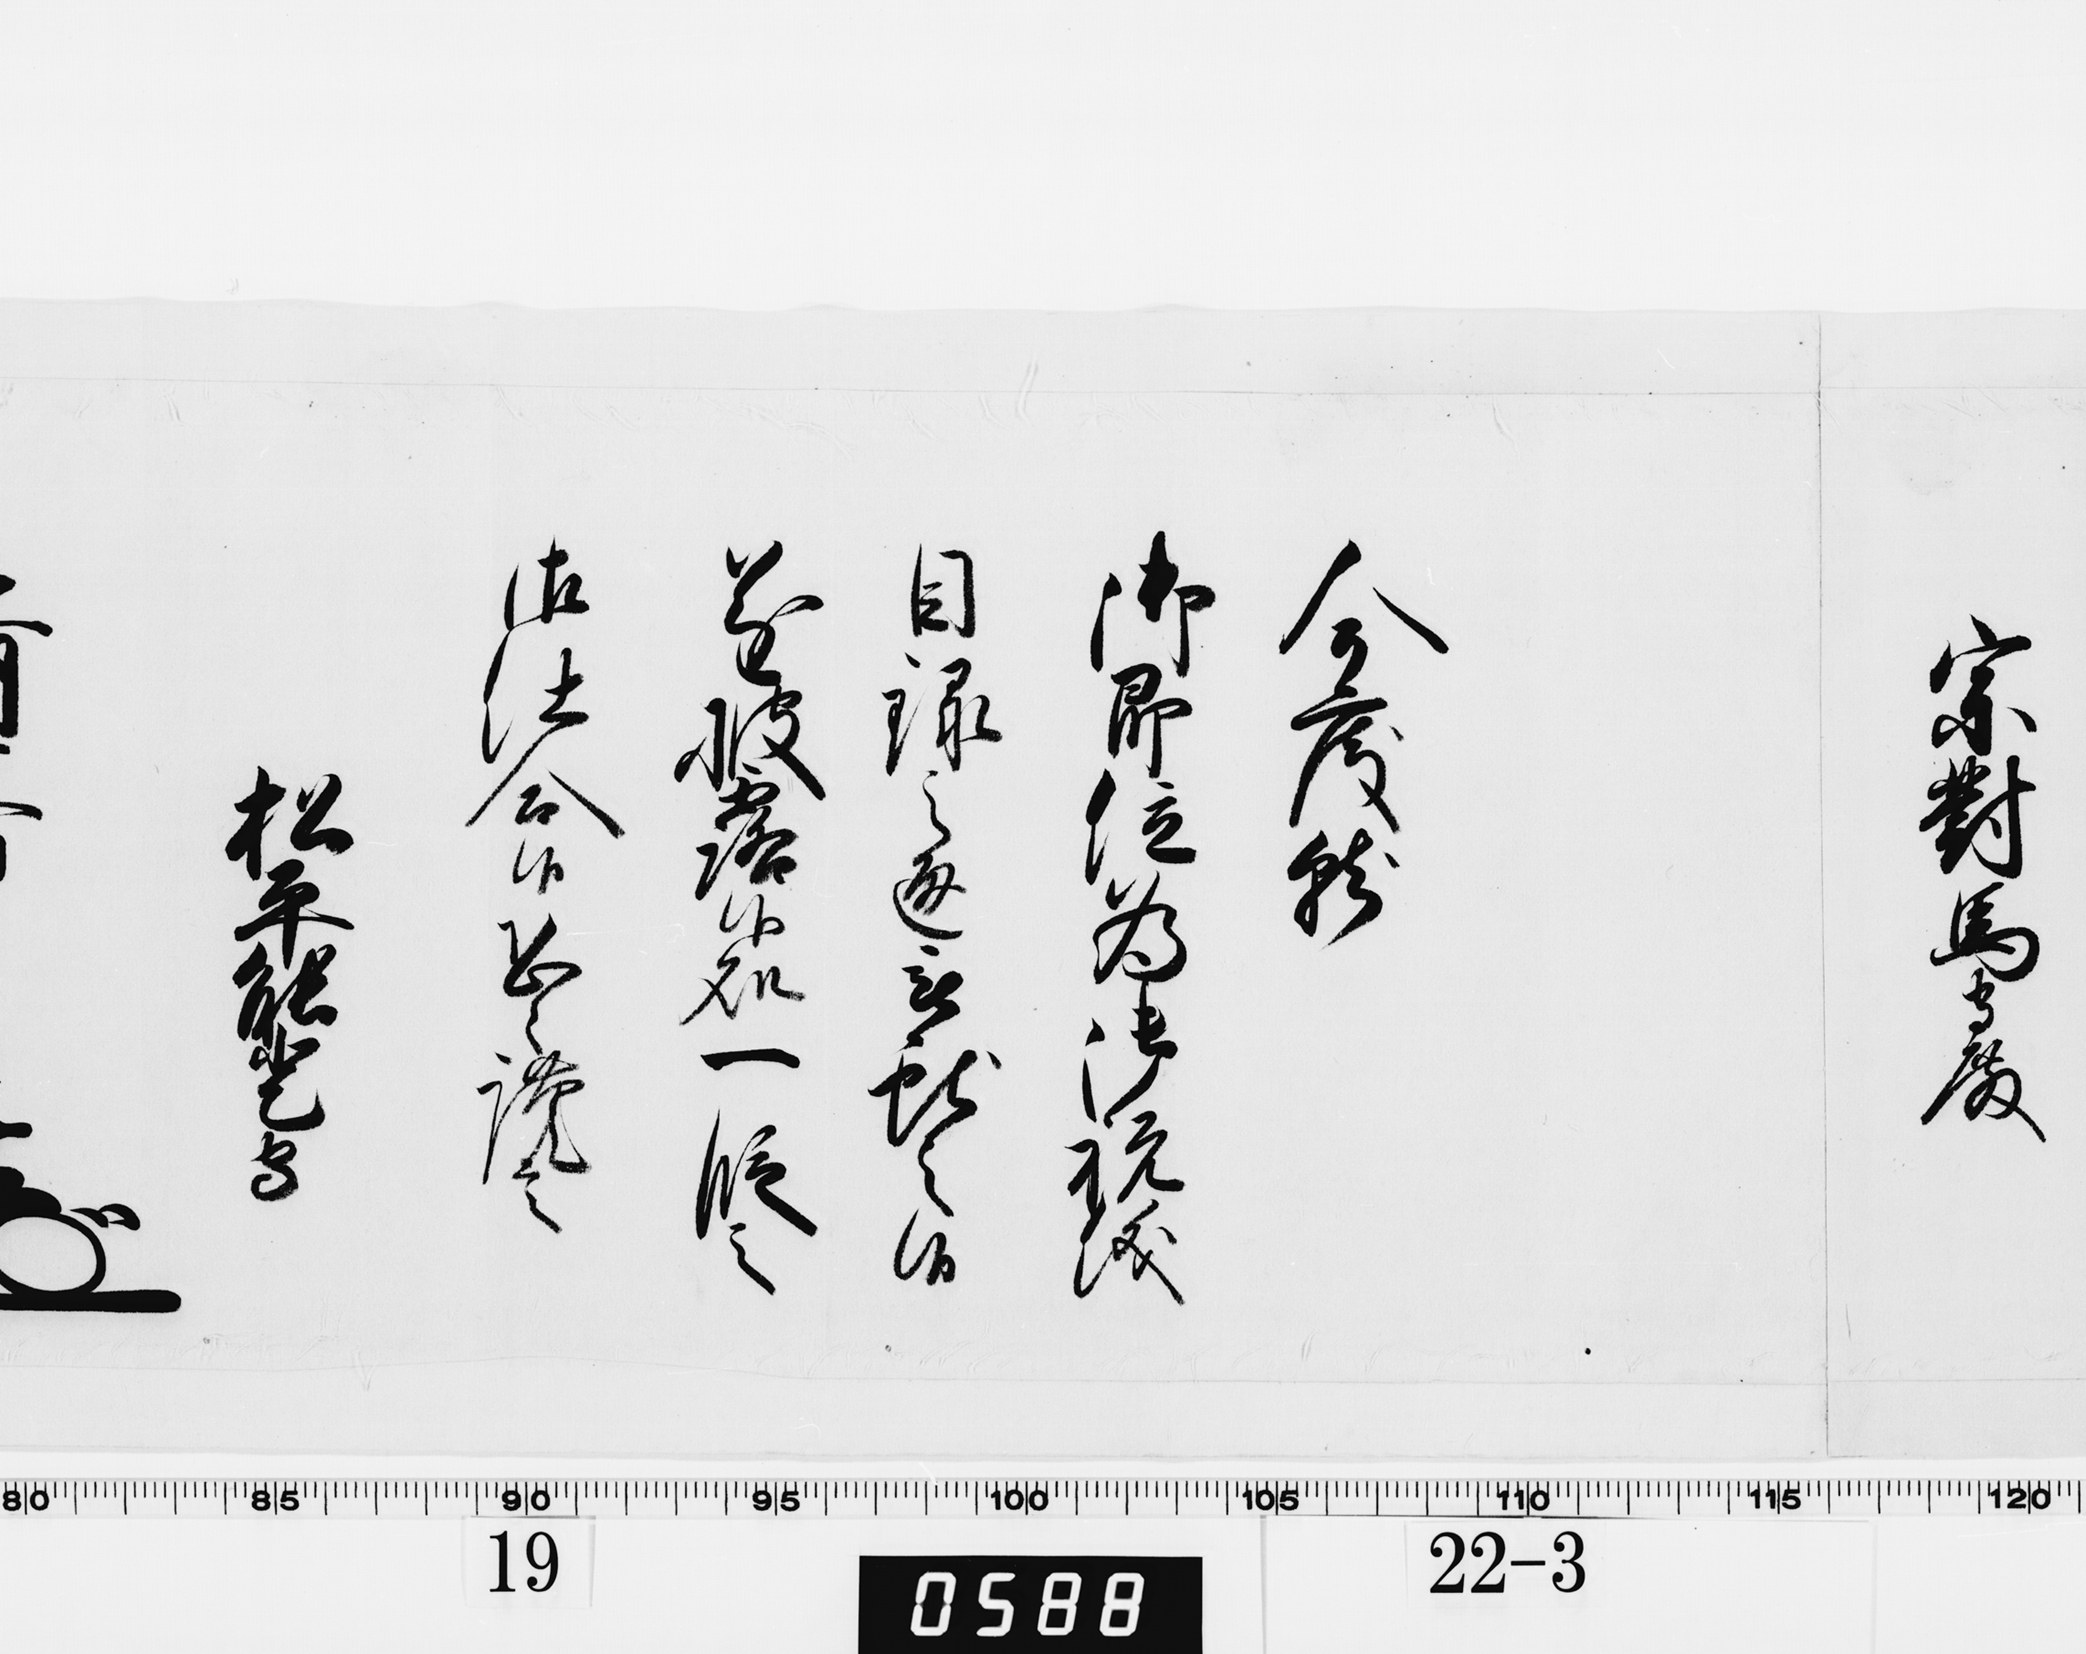 宗對馬守殿
今度就
御即位為御祝儀
目録之通被献之候
遂披露候処一段之
御仕合候恐々謹言
松平能登守
80 85 90 95 100 105 110 115 120
19
0588
22-3